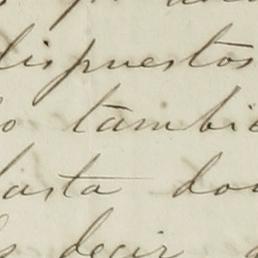 dispuestos
o tambié
hasta do
decir